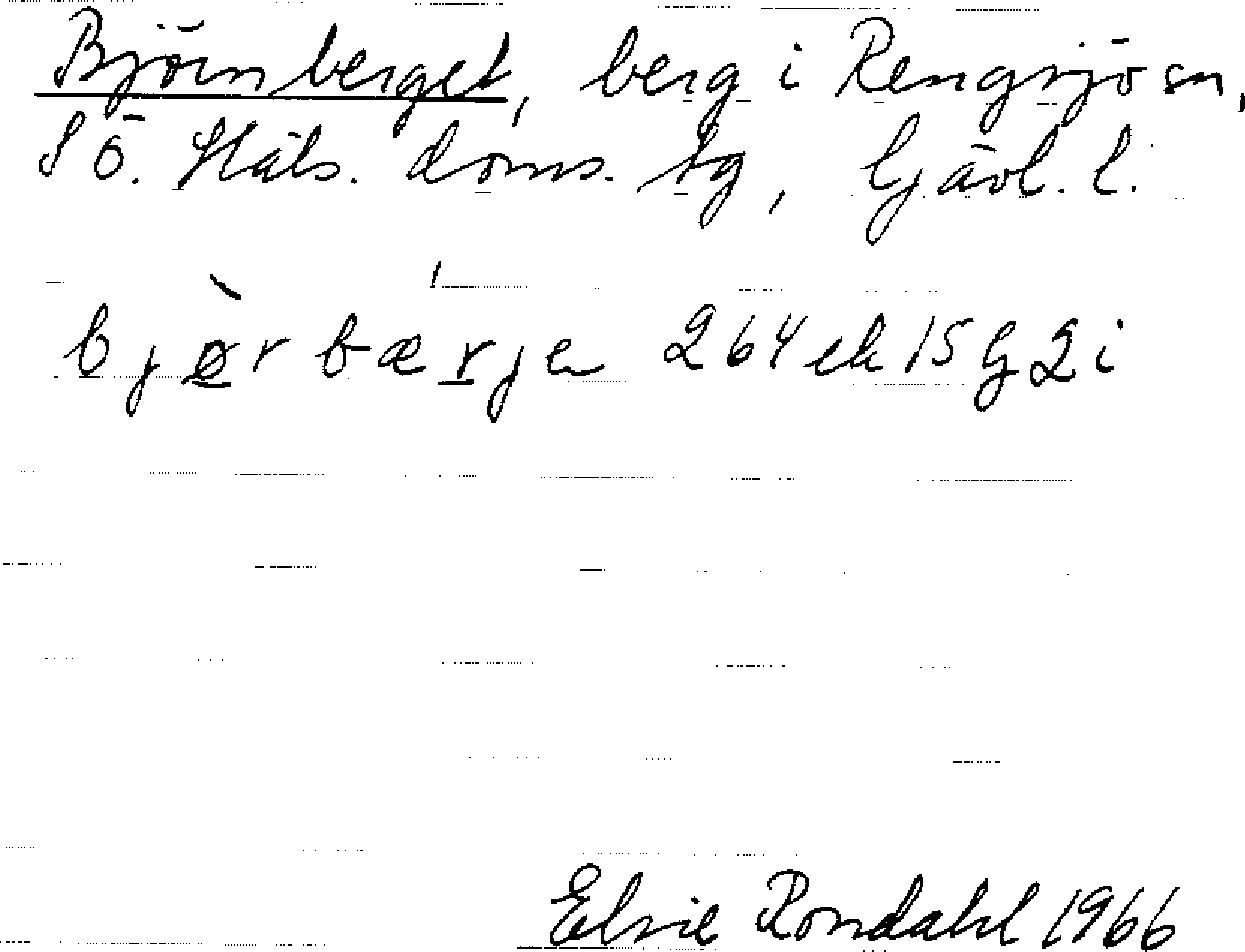 Björnberget, berg i Rengsjö sn,
SÖ. Häls. doms. tg, Gävl. l.
bjø̀rbæ'rjen 264 ek 15 G 2 i
Elsie Rondahl 1966